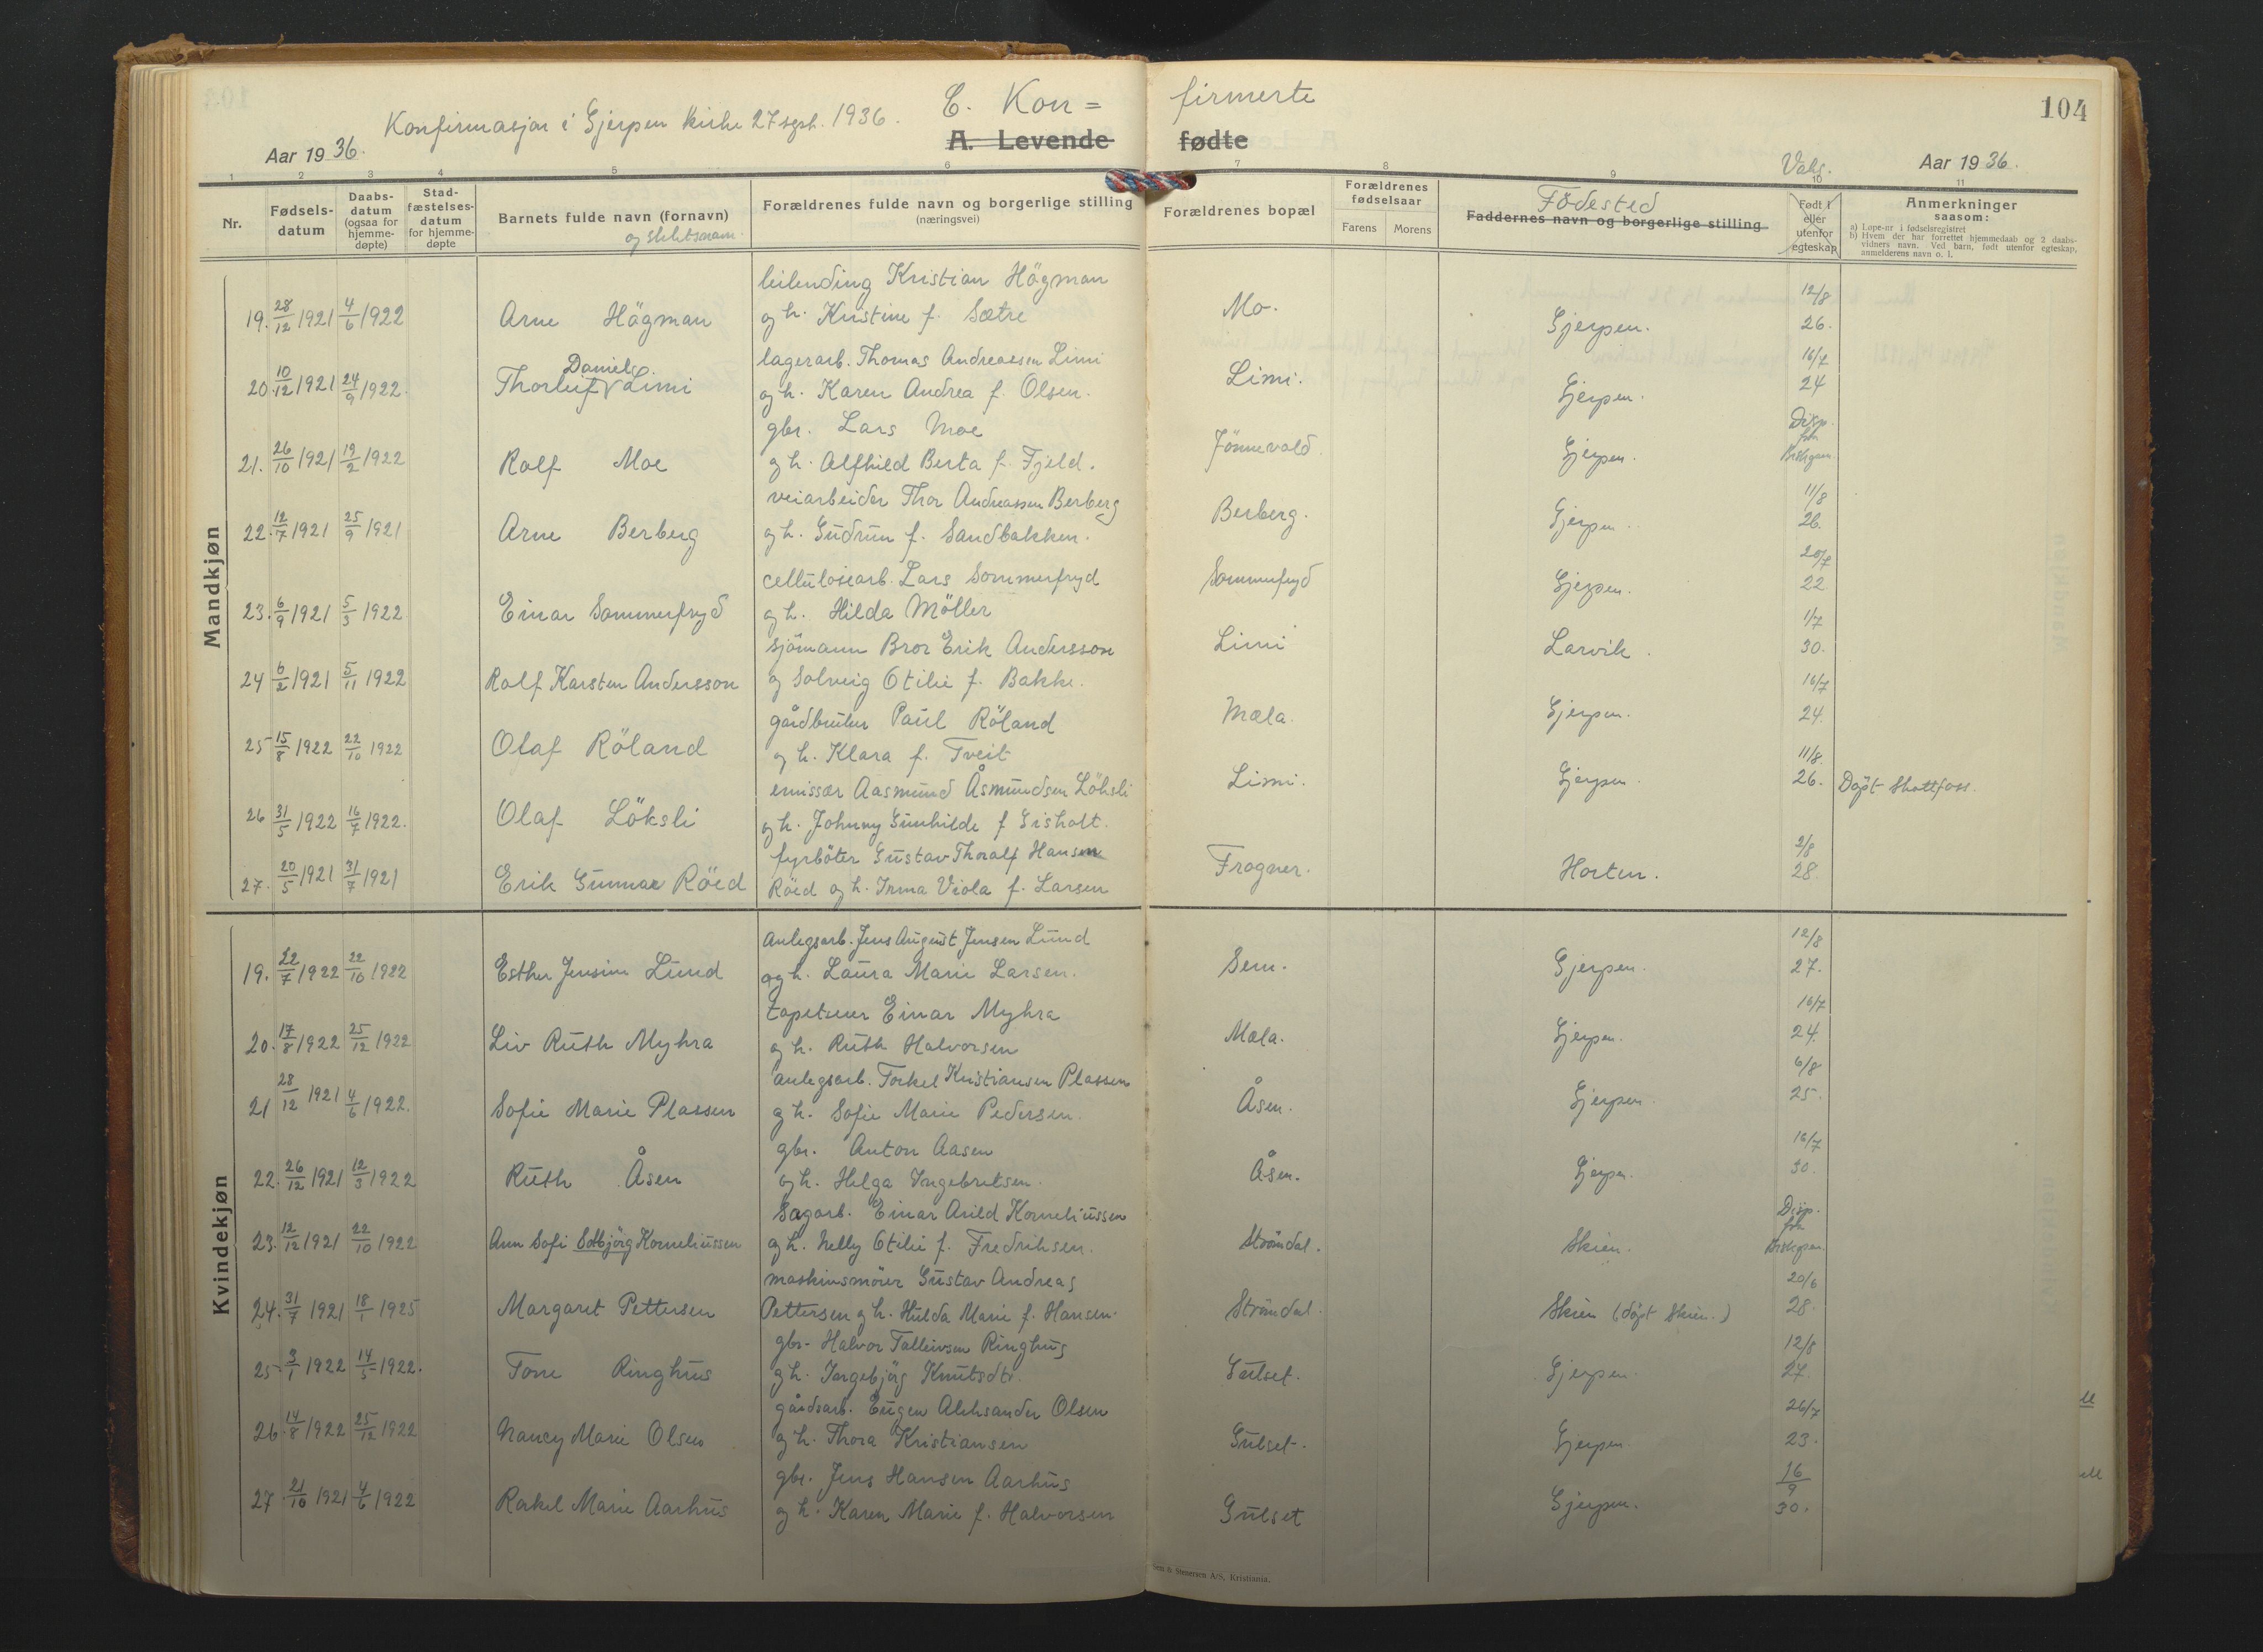 Konfirmasjon i Gjerpen kirke 27 sept. 1936.
C. Kon = firmerte
104
Aar 1936.
A. Levende fødte
Vaks.
Aar 1936.
1 2 3 4 5 6 7 8 9 10 11
Nr.
Fødsels-datum
Daabs-datum (ogsaa for hjemme-døpte)
Stad-fæstelses-datum for hjemme-døpte
Barnets fulde navn (fornavn)
og slektsnavn.
Forældrenes fulde navn og borgerlige stilling
(næringsvei)
Forældrenes bopæl
Forældrenes fødselsaar
Farens Morens
Fødested
Faddernes navn og borgerlige stilling
Født i eller utenfor egteskap
Anmerkninger
saasom:
a) Løpe-nr i fødselsregistret
b) Hvem der har forrettet hjemmedaab og 2 daabs-
vidners navn. Ved barn, født utenfor egteskap,
anmelderens navn o. l.
Mandkjøn
leilending Kristian Högman
19. 28/12 1921 4/6 1922 Arne Högman og h. Kristine f. Sætre Mo. Gjerpen. 12/8 26.
lagerarb. Thomas Andreassen Limi
20. 10/12 1921 24/9 1922. Thorleif Daniels. Limi og h. Karen Andrea f. Olsen. Limi. Gjerpen. 16/7 24
gbr. Lars Moe
21. 26/10 1921 19/2 1922 Rolf Moe og h. Alfhild Berta f. Fjeld. Jönnevald. Gjerpen. Disp. fra Biskopen.
veiarbeider Thor Andreassen Berberg
22. 12/7 1921 25/9 1921 Arne Berberg og h. Gudrun f. Sandbakken. Berberg. Gjerpen. 11/8 26.
cellulosearb. Lars Sommerfryd
23. 6/9 1921 5/3 1922 Einar Sommerfryd og h. Hilda Möller Sommerfryd Gjerpen. 20/7 22.
sjömann Bror Erik Andersson
24 6/2 1921 5/11 1922 Rolf Karsten Andersson og Solveig Otilie f. Bakke. Limi Larvik. 1/7 30.
gårdbruker Paul Röland
25 15/8 1922 22/10 1922 Olaf Röland og h. Klara f. Tveit Mæla. Gjerpen. 16/7 24.
emissær Aasmund Åsmundsen Löksli
26 31/5 1922 16/7 1922. Olaf Löksli og h. Johnny Gunhilde f Gisholt. Limi. Gjerpen. 11/8. 26. Döpt Skotfoss.
fyrböter Gustav Thoralf Hansen
27. 20/5 1921 31/7 1921 Erik Gunnar Röed Röed og h. Irma Viola f. Larsen Frogner. Horten. 2/8 28.
Kvindekjøn
Anlegsarb. Jens August Jensen Lund
19. 22/7 1922 22/10 1922 Esther Jensine Lund og h. Laura Marie Larsen. Sem. Gjerpen. 12/8 27.
tapetserer Einar Myhra
20. 17/8 1922 25/12 1922 Liv Ruth Myhra og h. Ruth Halvorsen Mæla. Gjerpen. 16/7 24.
anlegsarb. Torkel Kristiansen Plassen
21 28/12 1921 4/6 1922. Sofie Marie Plassen og h. Sofie Marie Pedersen. Åsen. Gjerpen 6/8 25.
gbr. Anton Aasen
22. 26/12 1921 12/3 1922 Ruth Åsen og h. Helga Ingebretsen. Åsen. Gjerpen. 16/7 30.
Sagarb. Einar Arild Korneliussen
23. 12/12 1921 22/10 1922 Ann Sofi Solbjörg Korneliussen og h. Nelly Otilie f. Fredriksen. Strömdal. Skien. Disp. fra Biskopen.
maskinsmörer Gustav Andreas
24. 31/7 1921 18/1 1925 Margaret Pettersen Pettersen og h. Hulda Marie f. Hansen. Strömdal. Skien (döpt Skien.) 20/6 28.
gbr. Halvor Talleivsen Ringhus
25 3/1 1922 14/5 1922. Tone Ringhus og h. Ingebjörg Knutsdtr. Gulset. Gjerpen. 12/8 27.
gårdsarb. Eugen Aleksander Olsen
26. 14/8 1922 25/12 1922 Nancy Marie Olsen og h. Thora Kristiansen Gulset. Gjerpen. 26/7 23.
gbr. Jens Hansen Aarhus
27 21/10 1921 4/6 1922 Rakel Marie Aarhus og h. Karen Marie f. Halvorsen Gulset Gjerpen. 16/9 30.
& Stenersen A/S, Kristiania.